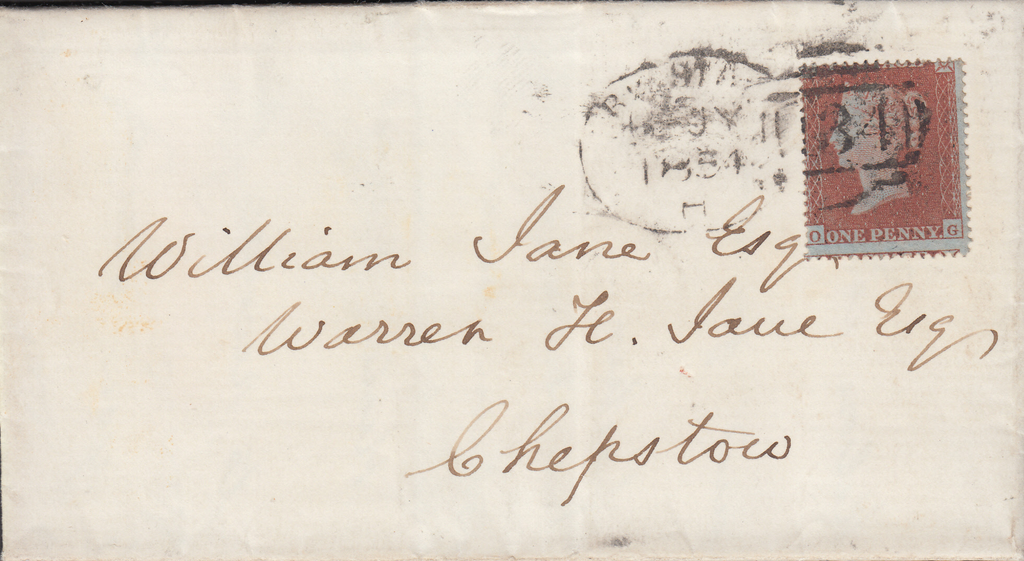 JY 11
1854
H
134
O ONE PENNY. G
William Jane Esq
Warren H. Jane Esq,
Chepstow